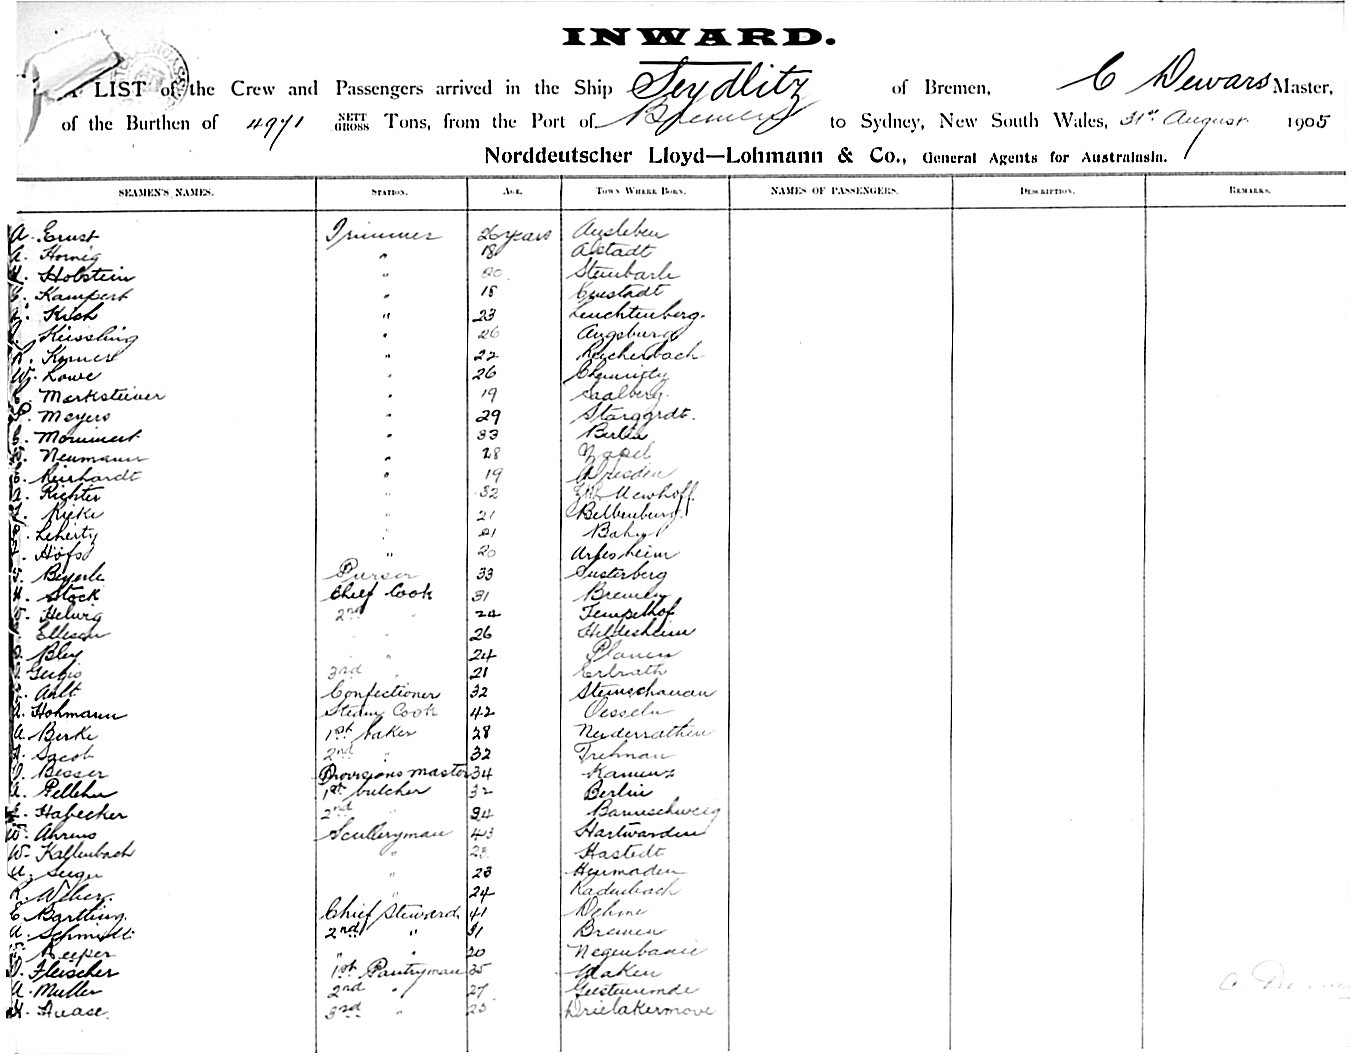 INWARD.
LIST of the Crew and Passengers arrived in the Ship Seydlitz of Bremen, C Dewars Master,
of the Burthen of 4971 NETT GROSS Tons, from the Port of Bremen to Sydney, New South Wales, 31st August 1905
Norddeutscher Lloyd—Lohmann & Co., General Agents for Australasia.
SEAMEN'S NAMES. STATION. AGE. TOWN WHERE BORN. NAMES OF PASSENGERS. DESCRIPTION. REMARKS.
A. Ernst Trimmer 26 years Ausleben
A. Hornig " 18 Alstadt
H. Holstein " 20 Steinbark
Kampert " 18
Kish " 23 Leuchtenberg.
Kiessling " 26 Augsburg
" 22 Reichenbach
W. Lowe " 26
Marksteiner " 19 Saalberg.
Meyers " 29 Stargardt.
Monument " 33 Berlin
Neumann " 28
Reinhardt " 19 Dresden
A. Richter " 32 Newhoff
Rieke " 21
Leherty " 21 Bahn
Hofs " 20 Arlesheim
Beyerle Purser 33 Susterberg
H. Stock Chief Cook 31 Bremen
Helwig 2nd " 24 Tempelhof
Ellison " " 26 Hildesheim
Bley " " 24 Plauen
3rd " 21 Erbrath
Confectioner 32 Steinschanau
A. Hohmann Steam Cook 42 Oesseln
A. Berke 1st baker 28 Neiderrathen
Jacob 2nd " 32
Besser Provisions master 34 Kamenz
A. Pelleher 1st butcher 32 Berlin
Habecker 2nd " 24 Baunschweig
W. Ahrens Sculleryman 43 Hartwarden
W. Kallenbach " 23 Hastedt
" 23
R. Weber. " 24 Kadenbach
C Bartling. Chief Steward 41 Dehme
A. Schmidt 2nd " 31 Bremen
Keeper " " 20
Fleischer 1st Pantryman 35
A. Muller 2nd " 27 Geestemunde
H. 3rd " 23 Drielakermove